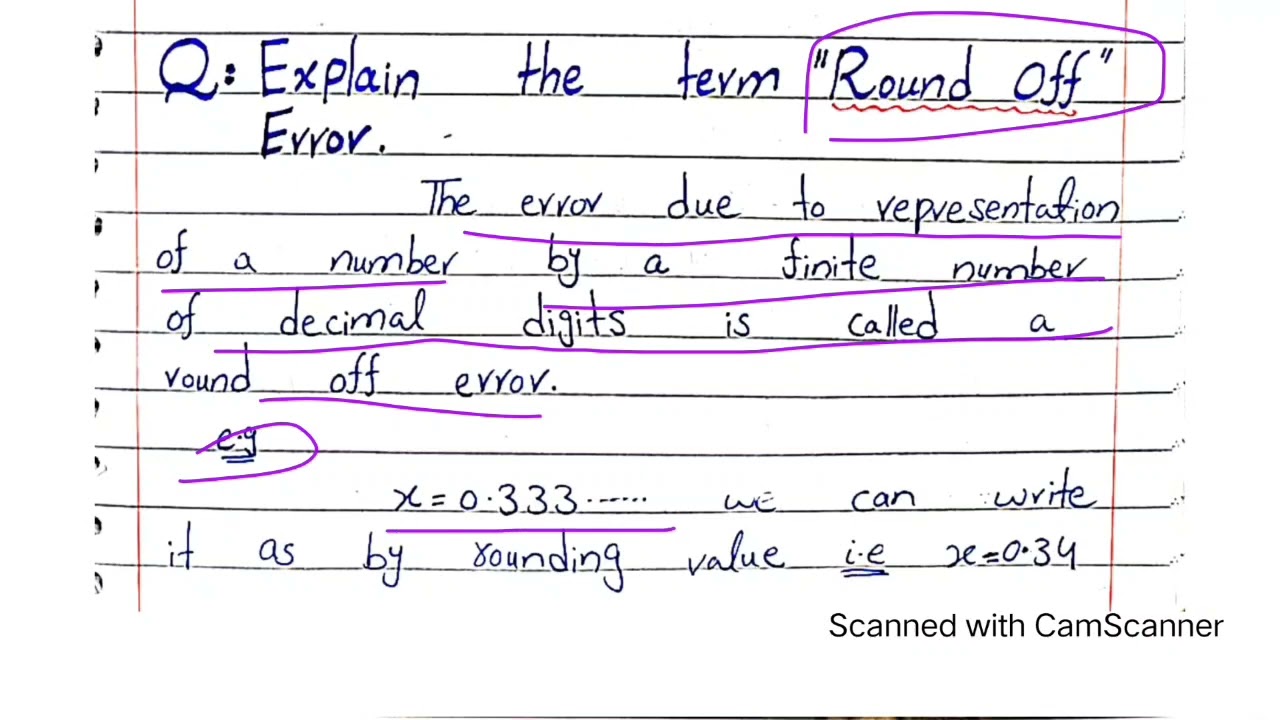 Q: Explain the term "Round Off"
Error.
The error due to representation
of a number by a finite number
of decimal digits is called a
round off error.
e.g
x = 0.333...... we can write
it as by rounding value i.e x=0.34
Scanned with CamScanner